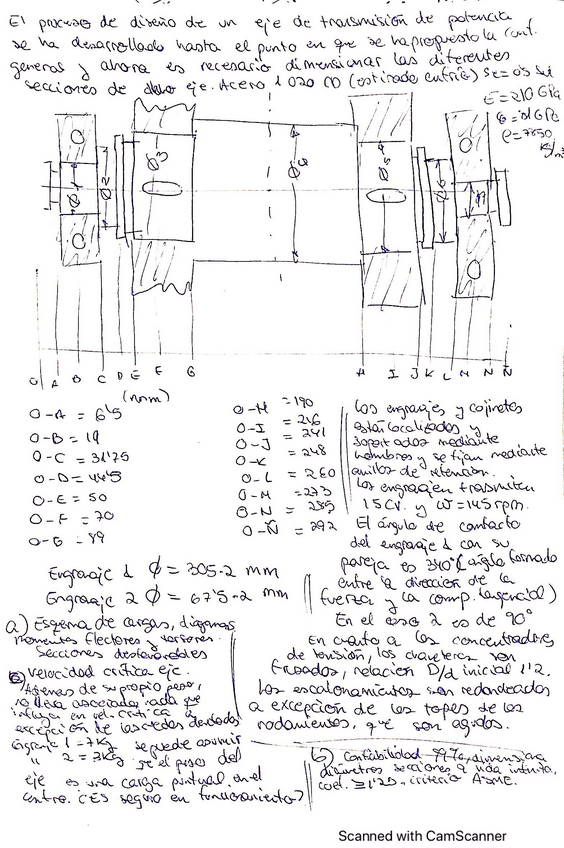 El proceso de diseño de un eje de transmisión de potencia
se ha desarrollado hasta el punto en que se ha propuesto la conf.
general y ahora es necesario dimensionar las diferentes
secciones de dicho eje. Acero 1020 CD (estirado en frío) Se = 0'5 Sut
E = 210 GPa
ρ = 7850
kg/m³
Ø1
Ø2
Ø3
Ø4
Ø5
Ø6
Ø7
O A B C D E F G H I J K L M N Ñ
(mm)
O-A = 6'5
O-B = 19
O-C = 31'75
O-D = 44'5
O-E = 50
O-F = 70
O-G = 99
O-H = 190
O-I = 216
O-J = 241
O-K = 248
O-L = 260
O-M = 273
O-N = 285
O-Ñ = 292
Los engranajes y cojinetes
están localizados y
soportados mediante
hombros y se fijan mediante
anillos de retención.
Los engranajes transmiten
15 CV. y ω = 145 rpm.
El ángulo de contacto
del engranaje 1 con su
pareja es 340° (ángulo formado
entre la dirección de la
fuerza y la comp. tangencial)
En el caso 2 es de 90°
En cuanto a los concentradores
de tensión, los chaveteros son
fresados, relación D/d inicial 1'2.
Los escalonamientos son redondeados
a excepción de los topes de los
rodamientos, que son agudos.
Engranaje 1 Ø = 305·2 mm
Engranaje 2 Ø = 675·2 mm
a) Esquema de cargas, diagramas
momentos flectores y torsores.
Secciones desfavorables
Velocidad crítica eje.
Además de su propio peso,
no lleva asociada nada que
influya en vel. crítica a
excepción de las ruedas dentadas
engranaje 1 = 7 kg se puede asumir
" 2 = 3 kg que el peso del
eje es una carga puntual en el
centro. ¿Es seguro en funcionamiento?
b) Confiabilidad 99%, dimensiona
diámetros secciones a vida infinita,
coef. ≥ 1'25, criterio ASME.
Scanned with CamScanner